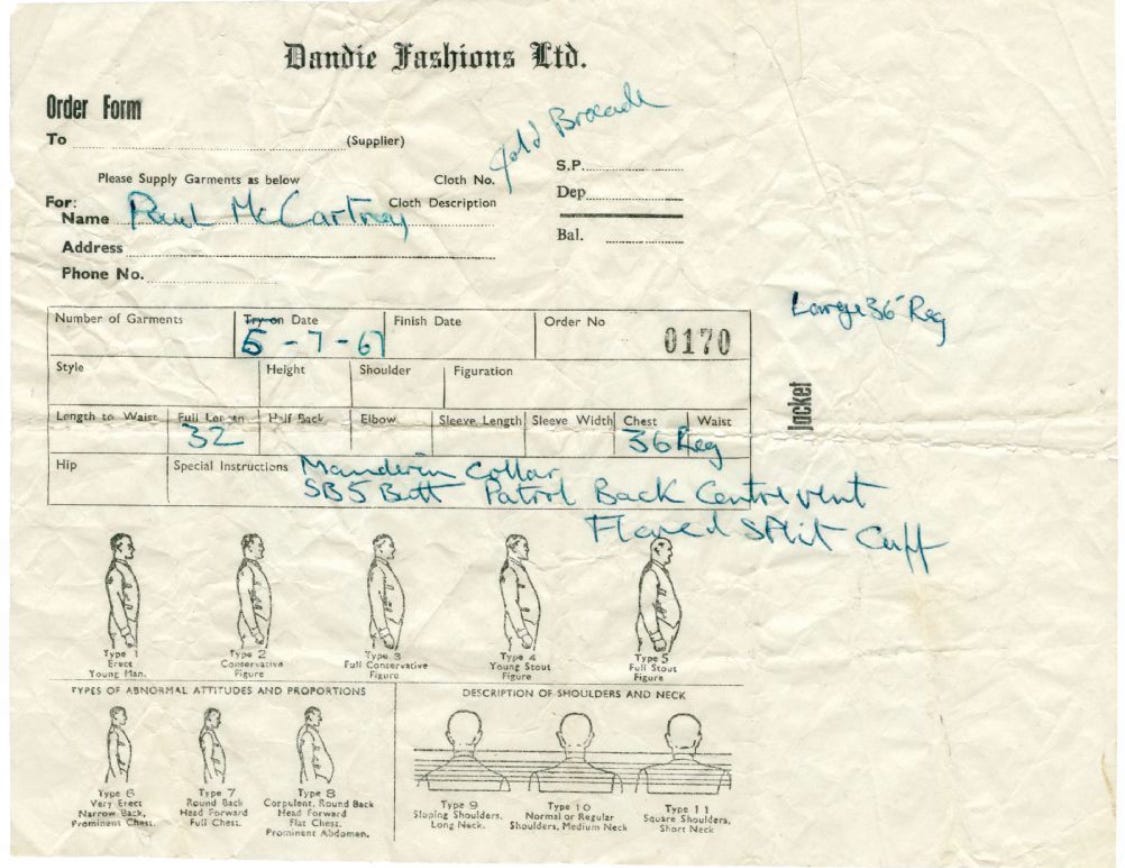 Dandie Fashions Ltd.
Order Form
To (Supplier)
Gold Brocade
S.P.
Please Supply Garments as below Cloth No.
Dep
For: Cloth Description
Name Paul McCartney
Bal.
Address
Phone No.
Large 36" Reg
Number of Garments Try-on Date Finish Date Order No
5-7-67 0170
Style Height Shoulder Figuration
Jacket
Length to Waist Full Length Half Back Elbow Sleeve Length Sleeve Width Chest Waist
32 36 Reg
Hip Special Instructions Manderin Collar
SB5 Butt Patrol Back Centre vent
Flared Split Cuff
Type 1 Type 2 Type 3 Type 4 Type 5
Erect Conservative Full Conservative Young Stout Full Stout
Young Man. Figure Figure Figure Figure
TYPES OF ABNORMAL ATTITUDES AND PROPORTIONS DESCRIPTION OF SHOULDERS AND NECK
Type 6 Type 7 Type 8
Very Erect Round Back Corpulent, Round Back
Narrow Back, Head Forward Head Forward
Prominent Chest. Full Chest. Flat Chest.
Prominent Abdomen.
Type 9 Type 10 Type 11
Sloping Shoulders, Normal or Regular Square Shoulders,
Long Neck. Shoulders, Medium Neck Short Neck